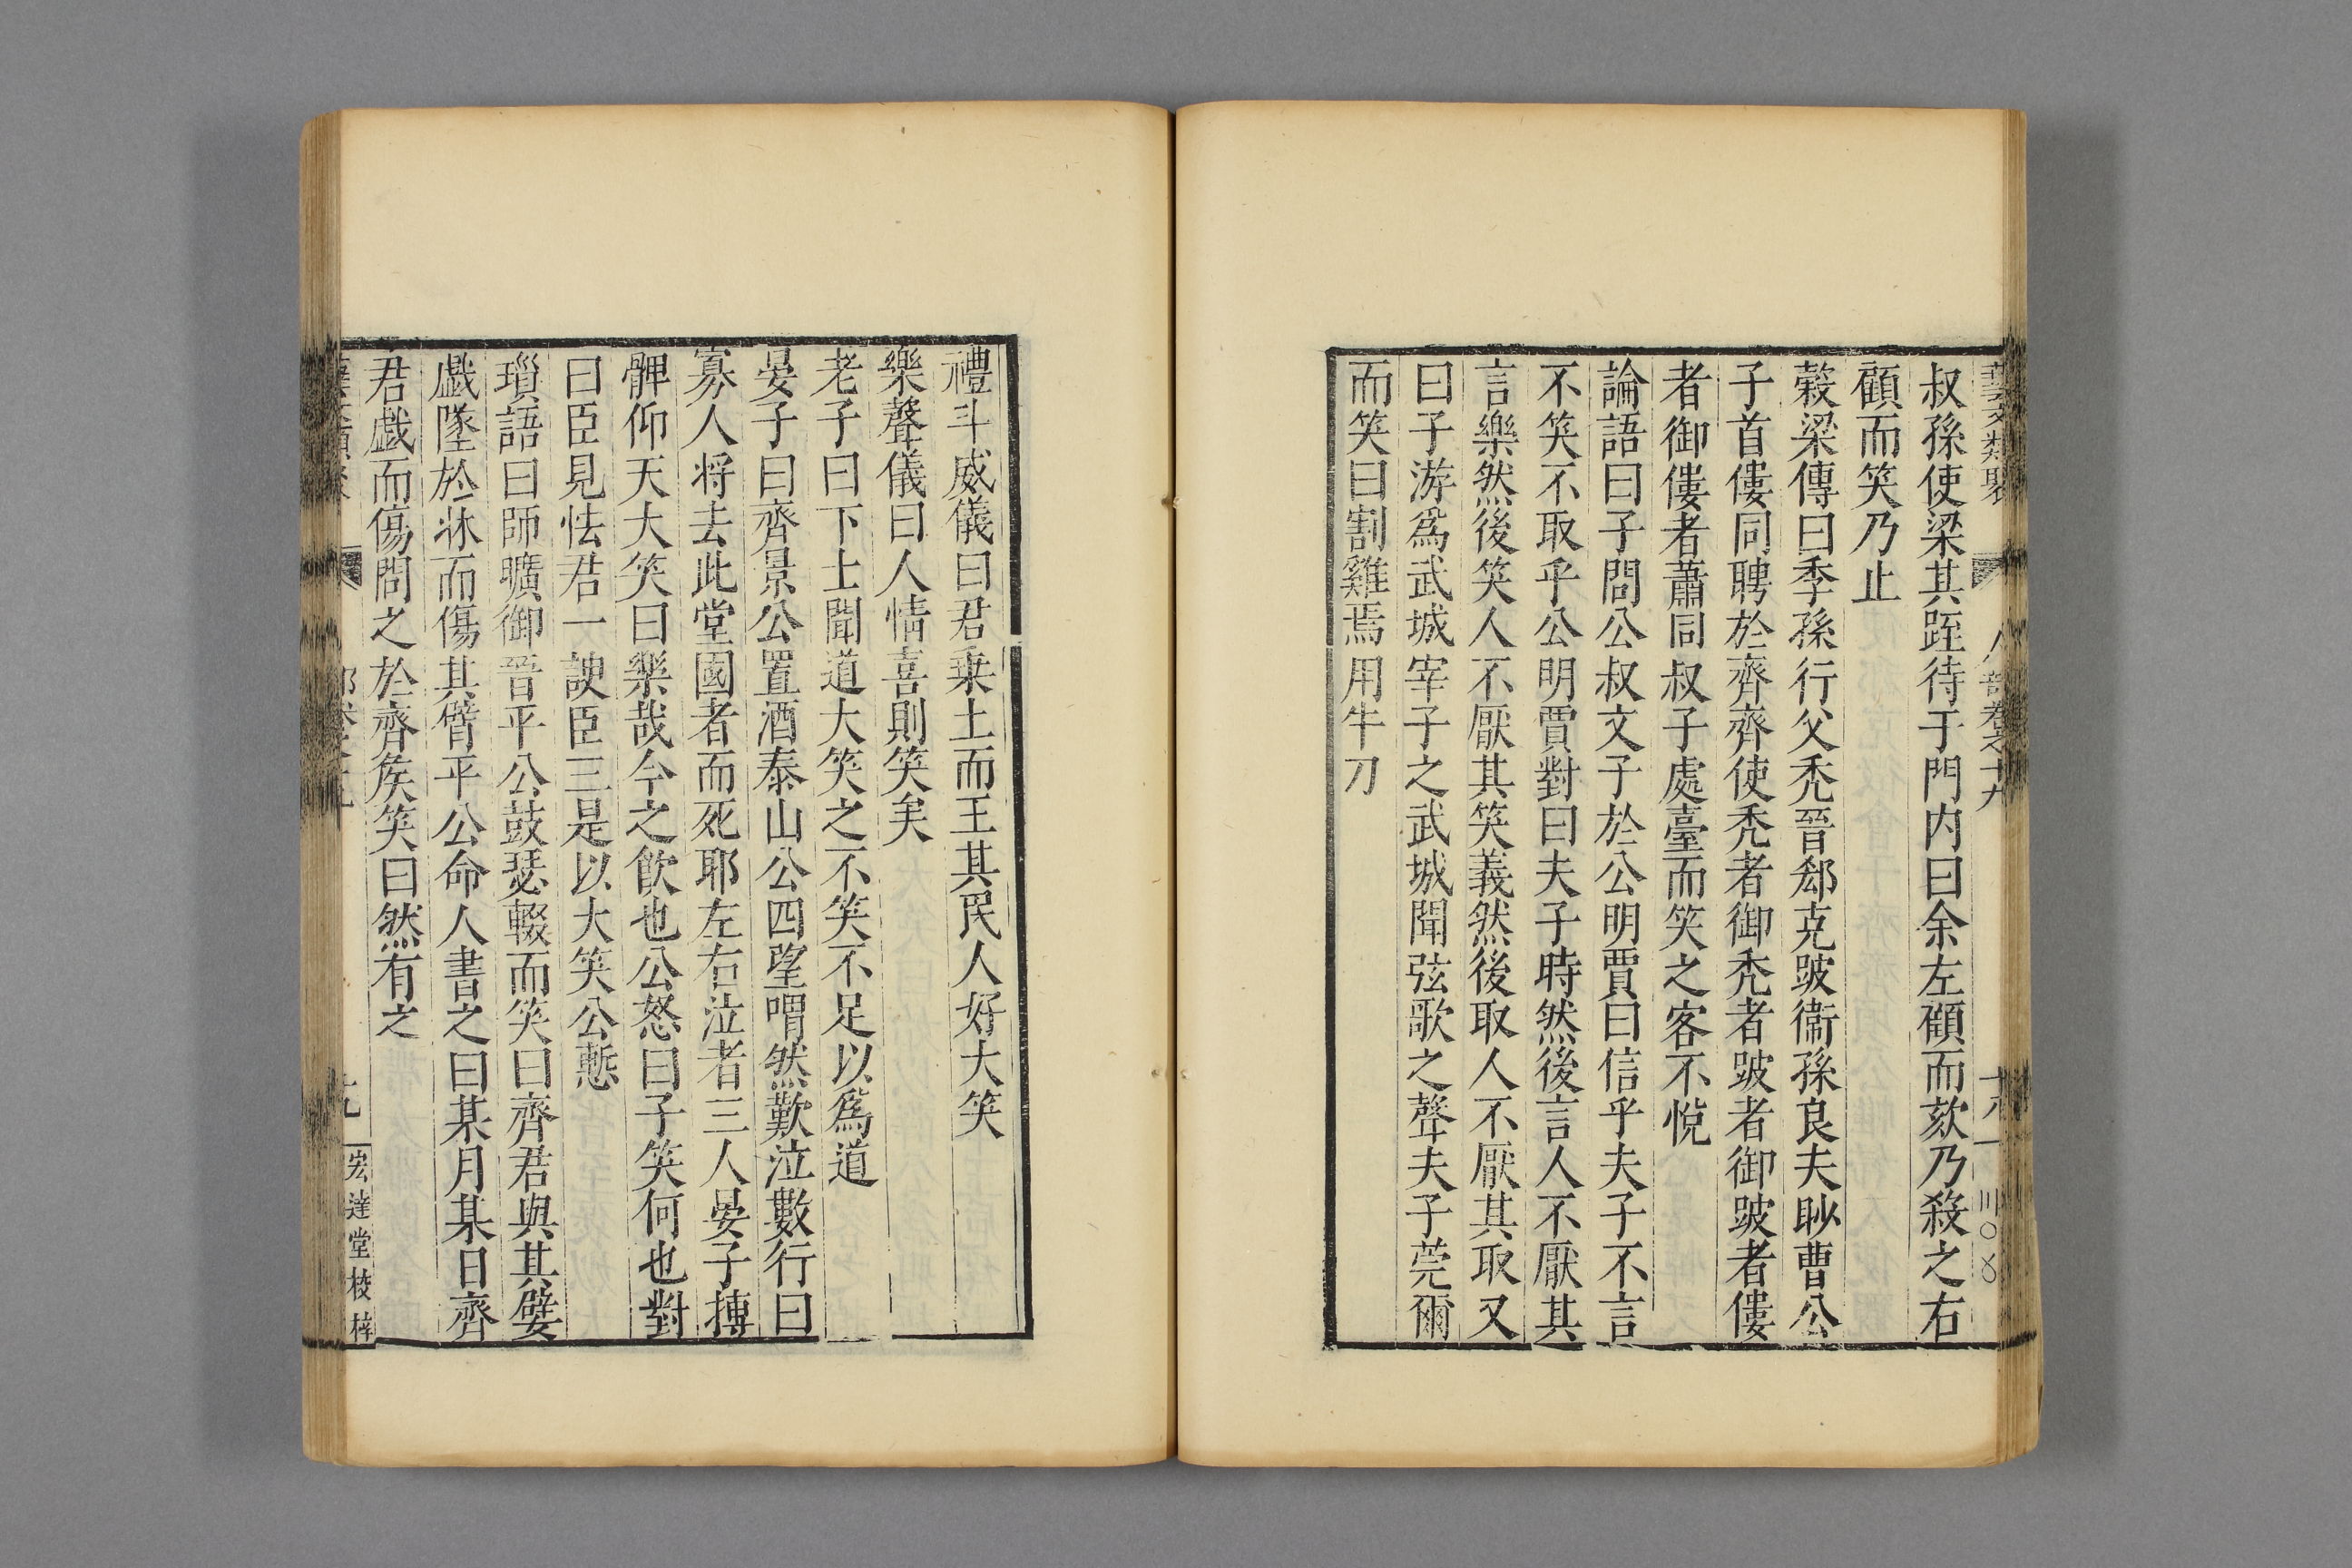 藝文類聚 人部卷之十九 十八
叔孫使梁其踁待于門内曰余左顧而欬乃殺之右
顧而笑乃止
榖梁傳曰季孫行父禿晉郄克跛衞孫良夫眇曹公
子首僂同聘於齊齊使秃者御秃者跛者御跛者僂
者御僂者蕭同叔子處臺而笑之客不悅
論語曰子問公叔文子於公明賈曰信乎夫子不言
不笑不取乎公明賈對曰夫子時然後言人不厭其
言樂然後笑人不厭其笑義然後取人不厭其取又
曰子游爲武城宰子之武城聞弦歌之聲夫子莞爾
而笑曰割雞焉用牛刀
禮斗威儀曰君乗土而王其民人好大笑
樂聲儀曰人情喜則笑矣
老子曰下士聞道大笑之不笑不足以爲道
晏子曰齊景公置酒泰山公四望喟然歎泣數行曰
寡人将去此堂國者而死耶左右泣者三人晏子搏
髀仰天大笑曰樂哉今之飮也公怒曰子笑何也對
曰臣見怯君一諛臣三是以大笑公慙
瑣語曰師曠御晉平公鼓瑟輟而笑曰齊君與其嬖
戯墜於牀而傷其臂平公命人書之曰某月某日齊
君戯而傷問之於齊矦笑曰然有之
宏達堂校梓